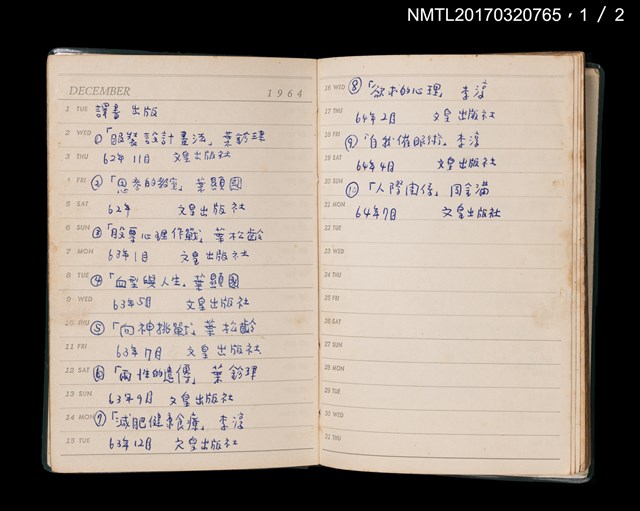 NMTL20170320765，1 / 2
DECEMBER 1964
1 TUE 譯書 出版
2 WED ①「服裝設計畫法」葉鈴津
3 THU 62年11月 文皇出版社
4 FRI ②「思考的教室」葉顯國
5 SAT 62年 文皇出版社
6 SUN ③「股票心理作戰」葉松齡
7 MON 63年1月 文皇出版社
8 TUE ④「血型與人生」葉顯國
9 WED 63年5月 文皇出版社
10 THU ⑤「向神挑戰」葉松齡
11 FRI 63年7月 文皇出版社
12 SAT ⑥「兩性的遺傳」葉鈴津
13 SUN 63年9月 文皇出版社
14 MON ⑦「減肥健美食療」李淳
15 TUE 63年12月 文皇出版社
16 WED ⑧「欲求的心理」李淳
17 THU 64年2月 文皇出版社
18 FRI ⑨「自我催眠術」李淳
19 SAT 64年4月 文皇出版社
20 SUN ⑩「人際関係」周金滿
21 MON 64年7月 文皇出版社
22 TUE
23 WED
24 THU
25 FRI
26 SAT
27 SUN
28 MON
29 TUE
30 WED
31 THU